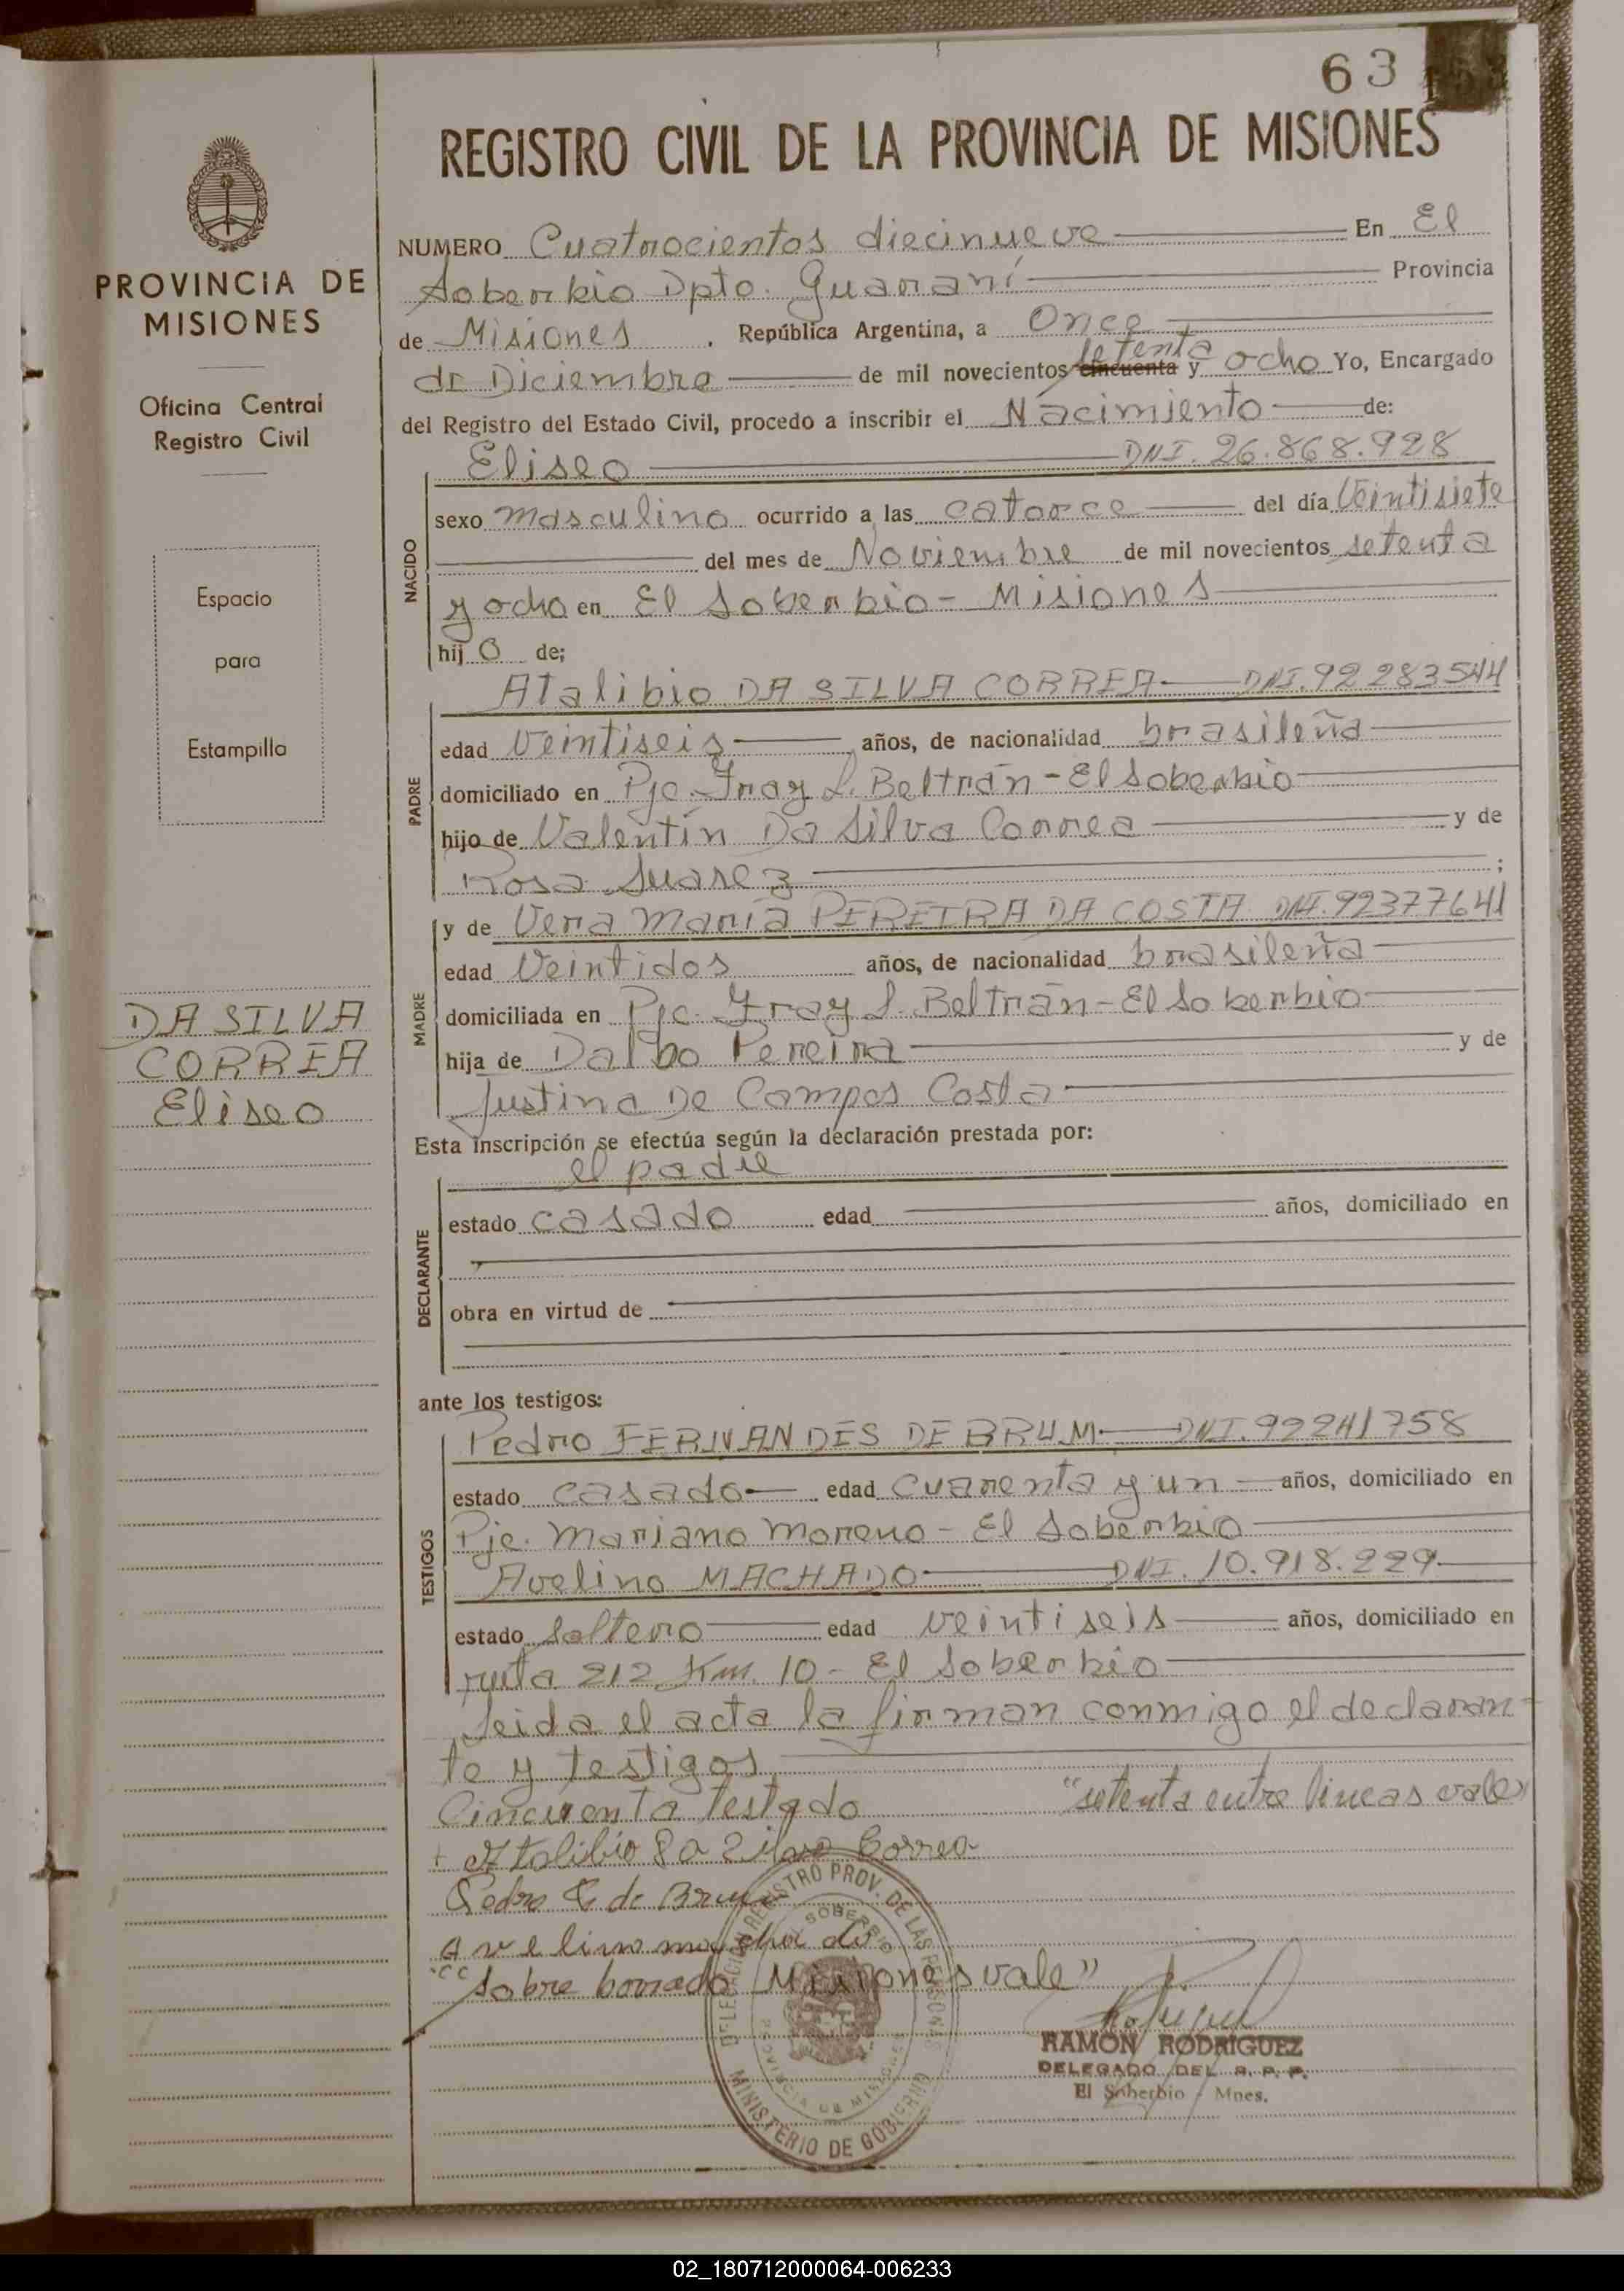 63
REGISTRO CIVIL DE LA PROVINCIA DE MISIONES
PROVINCIA DE
MISIONES
Oficina Central
Registro Civil
Espacio
para
Estampilla
DA SILVA
CORREA
Eliseo
NUMERO Cuatrocientos diecinueve En El
Soberbio Dpto. Guaraní Provincia
de Misiones . República Argentina, a Once
setenta
de Diciembre de mil novecientos cincuenta y ocho Yo, Encargado
del Registro del Estado Civil, procedo a inscribir el Nacimiento de:
Eliseo DNI. 26.868.928
NACIDO
sexo masculino ocurrido a las catorce del día Veintisiete
del mes de Noviembre de mil novecientos setenta
y ocho en El Soberbio - Misiones
hij o de;
Atalibio DA SILVA CORREA DNI. 92283544
PADRE
edad Veintiseis años, de nacionalidad brasileña
domiciliado en Pje. Fray L. Beltrán - El Soberbio
hijo de Valentín Da Silva Correa y de
Rosa Suarez ;
y de Vera María PEREIRA DA COSTA DNI. 92377641
MADRE
edad Veintidos años, de nacionalidad brasileña
domiciliada en Pje. Fray L. Beltrán - El Soberbio
hija de Dalbo Pereira y de
Justina De Campos Costa
Esta inscripción se efectúa según la declaración prestada por:
el padre
DECLARANTE
estado casado edad años, domiciliado en
obra en virtud de
ante los testigos:
Pedro FERNANDES DE BRUM DNI. 92241758
TESTIGOS
estado casado edad cuarenta y un años, domiciliado en
Pje. Mariano Moreno - El Soberbio
Avelino MACHADO DNI. 10.918.229
estado soltero edad veintiseis años, domiciliado en
ruta 212 Km. 10 - El Soberbio
Leida el acta la firman conmigo el declaran-
te y testigos
Cincuenta testado "setenta entre lineas vale"
+ Atalibio Da Silva Correa
Pedro F de Brum
Avelino machado
"Sobre borrado Misiones vale"
DELEGACION REGISTRO PROV. DE LAS PERSONAS
SOBERBIO
PROVINCIA DE MISIONES
MINISTERIO DE GOBIERNO
RAMÓN RODRIGUEZ
DELEGADO DEL R. P. P.
El Soberbio - Mnes.
02_180712000064-006233